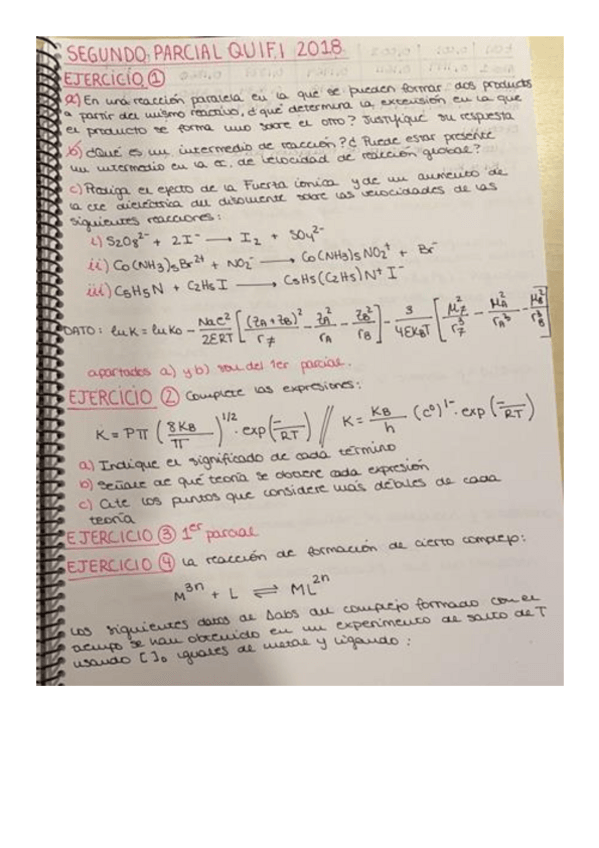 SEGUNDO PARCIAL QUIFI 2018
EJERCICIO ①
a) En una reacción paralela en la que se pueden formar dos products
a partir del mismo reactivo, ¿qué determina la extensión en la que
el producto se forma uno sobre el otro? Justifique su respuesta
b) ¿Qué es un intermedio de reacción? ¿Puede estar presente
un intermedio en la ec. de velocidad de reacción global?
c) Prediga el efecto de la Fuerza iónica y de un aumento de
la cte dieléctrica del disolvente sobre las velocidades de las
siguientes reacciones:
i) S₂O₈²⁻ + 2I⁻ → I₂ + SO₄²⁻
ii) Co(NH₃)₅Br²⁺ + NO₂⁻ → Co(NH₃)₅NO₂⁺ + Br⁻
iii) C₅H₅N + C₂H₅I → C₅H₅(C₂H₅)N⁺I⁻
DATO: lnK = lnK₀ - Nae²/2ERT [(z_A+z_B)²/r≠ - z_A²/r_A - z_B²/r_B] - 3/4EK_BT [μ≠²/r≠³ - μ_A²/r_A³ - μ_B²/r_B³]
apartados a) y b) son del 1er parcial.
EJERCICIO ② Complete las expresiones:
K = Pπ (8K_B/π)^1/2 · exp(-/RT) // K = K_B/h (c⁰)^1- · exp(-/RT)
a) Indique el significado de cada término
b) Señale de qué teoría se obtiene cada expresión
c) Cite los puntos que considere más débiles de cada
teoría
EJERCICIO ③ 1er parcial
EJERCICIO ④ La reacción de formación de cierto complejo:
M³ⁿ + L ⇌ ML²ⁿ
Los siguientes datos de Δabs del complejo formado con el
tiempo se han obtenido en un experimento de salto de T
usando [ ]₀ iguales de metal y ligando: